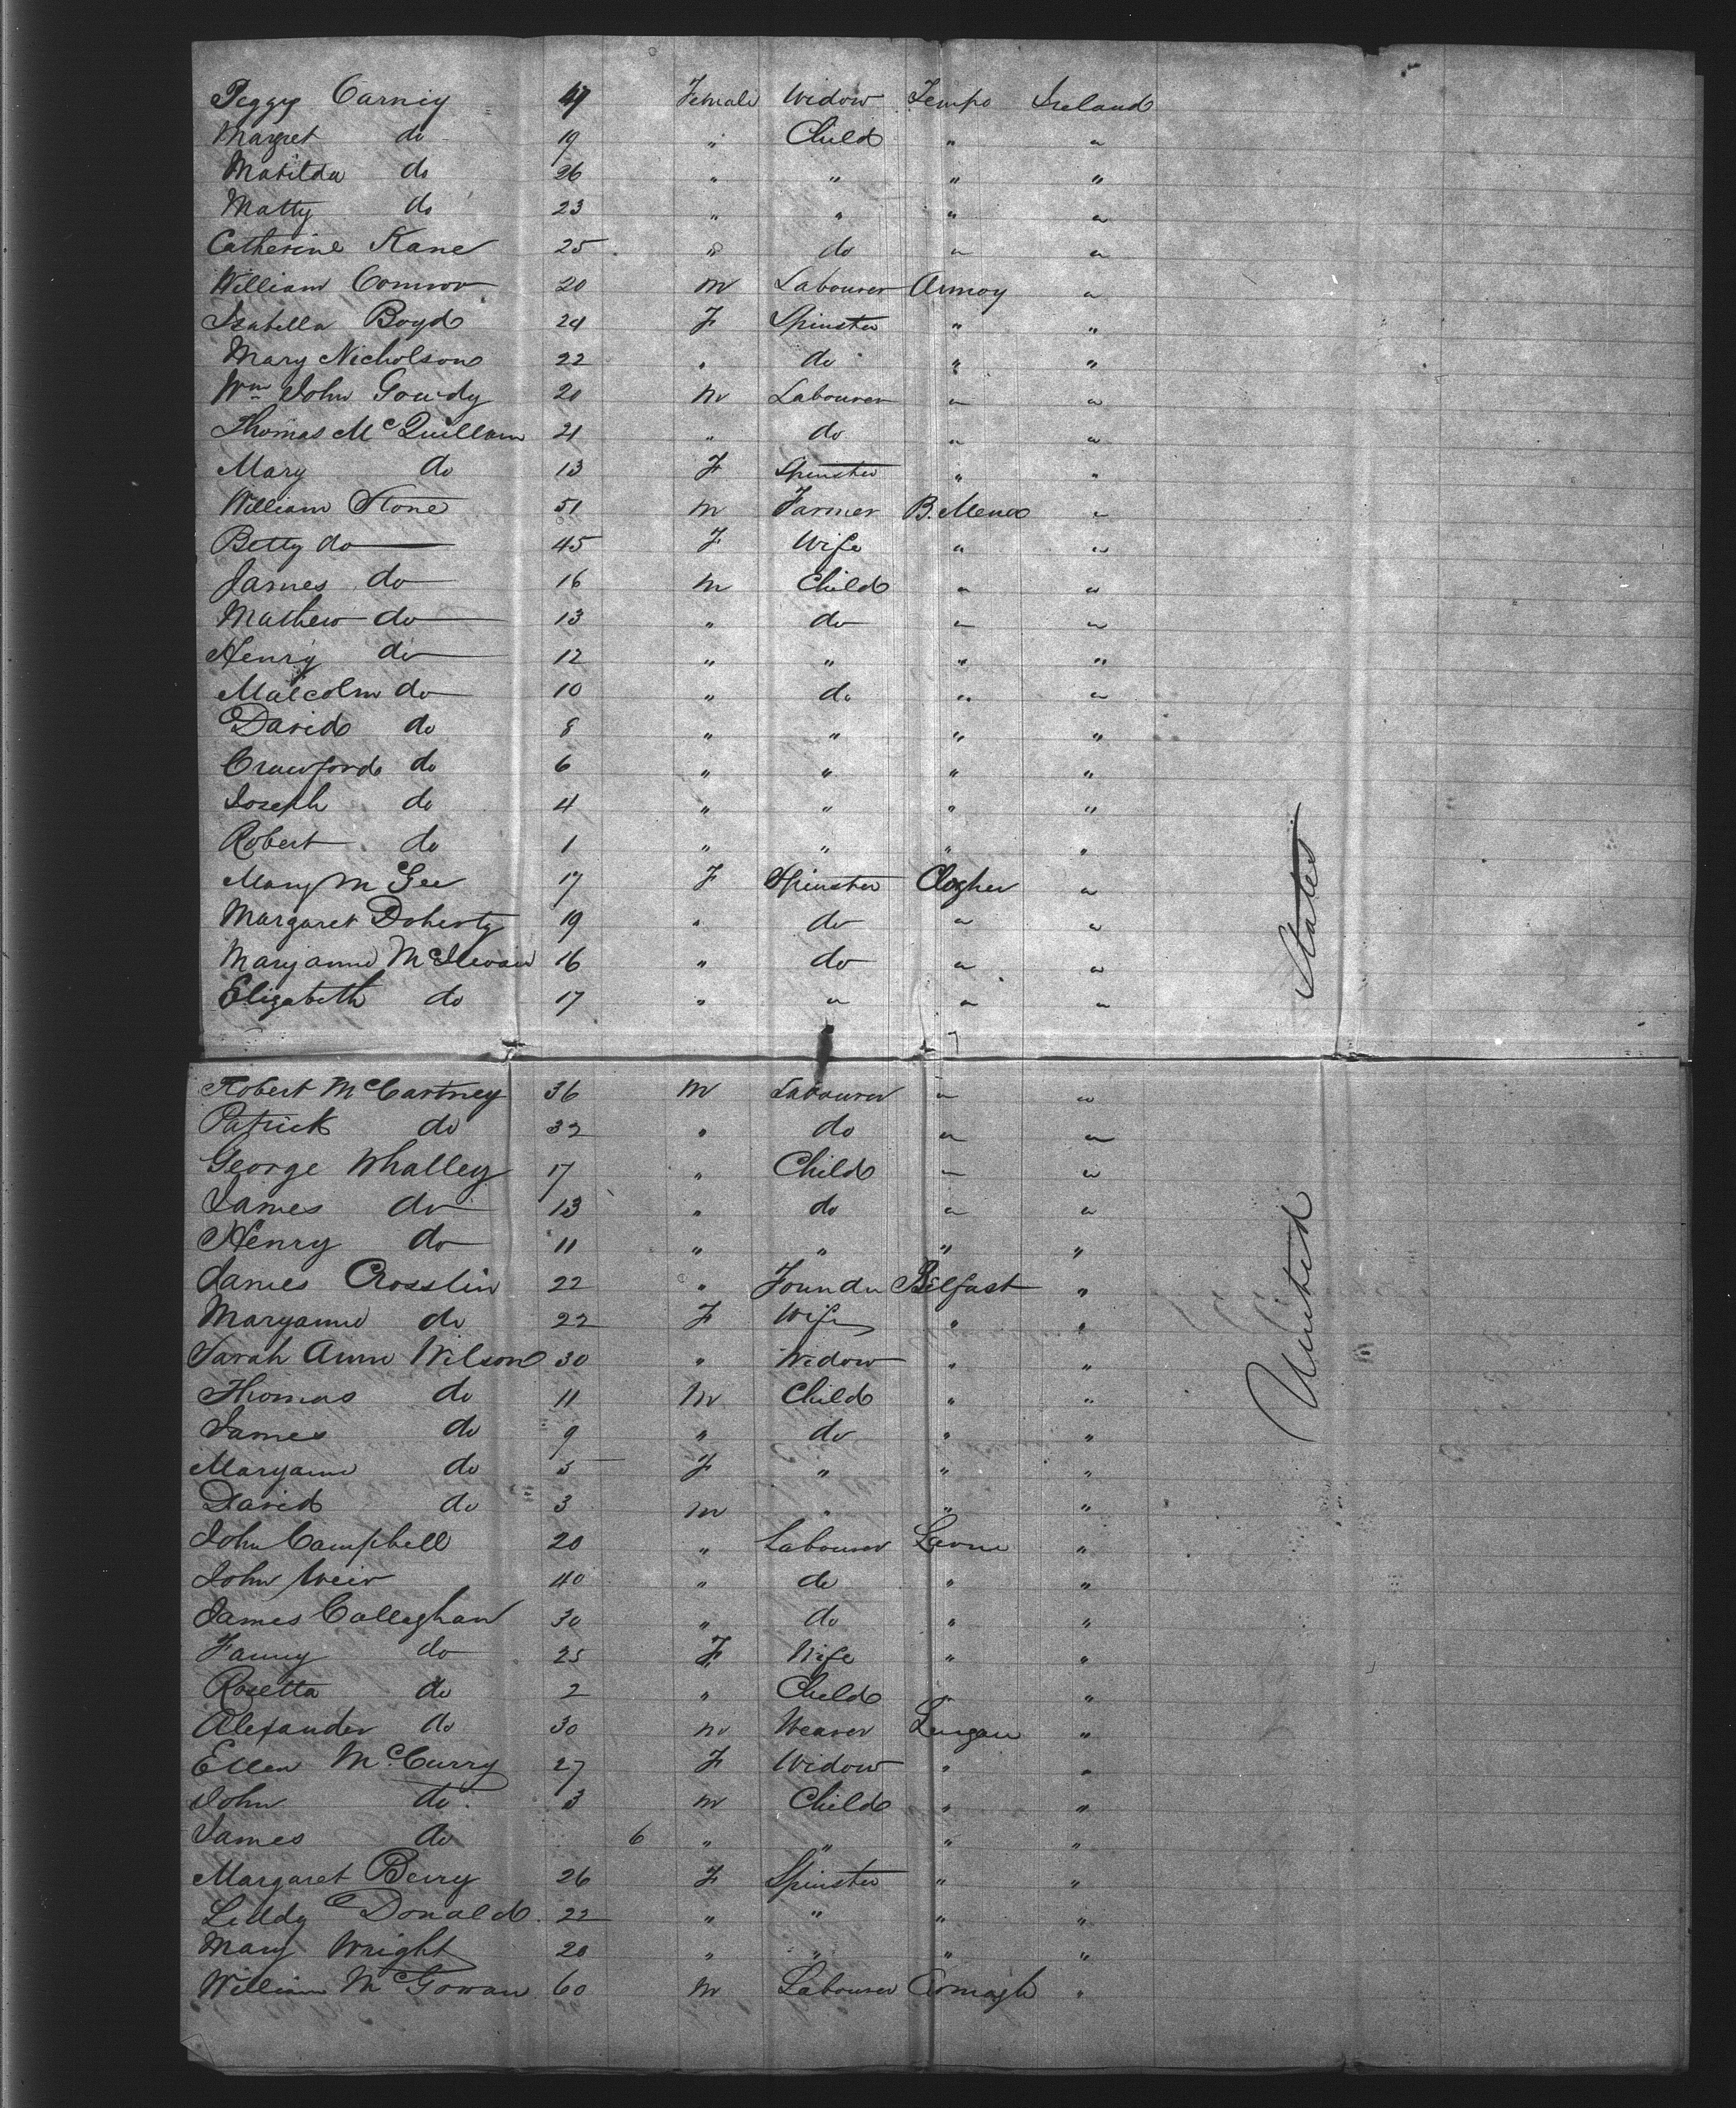 Peggy Carney 47 Female Widow Tempo Ireland
Margret do 19 " Child " "
Matilda do 26 " " " "
Matty do 23 " " " "
Catherine Kane 25 " do " "
William Connor 20 M Labourer Armoy "
Isabella Boyd 24 F Spinster " "
Mary Nicholson 22 " do " "
Wm John Gowdy 20 M Labourer " "
Thomas McQuillan 21 " do " "
Mary do 13 F Spinster " "
William Stone 51 M Farmer B. Mena "
Betty do 45 F Wife " "
James do 16 M Child " "
Mathew do 13 " do " "
Henry do 12 " " " "
Malcolm do 10 " do " "
David do 8 " " " "
Crawford do 6 " " " "
Joseph do 4 " " " "
Robert do 1 " " " "
Mary McGee 17 F Spinster Clogher "
Margaret Doherty 19 " do " "
Maryanne 16 " do " "
Elizabeth do 17 " " " "
Robert McCartney 36 M Labourer " "
Patrick do 32 " do " "
George Whalley 17 " Child " "
James do 13 " do " "
Henry do 11 " " " "
James Crosslin 22 " Founder Belfast "
Maryanne do 22 F Wife " "
Sarah Ann Wilson 30 " Widow " "
Thomas do 11 M Child " "
James do 9 " do " "
Maryanne do 5 F " " "
David do 3 M " " "
John Campbell 20 " Labourer Larne "
John Weir 40 " do " "
James Callaghan 30 " do " "
Fanny do 25 F Wife " "
Rosetta do 2 " Child " "
Alexander do 30 M Weaver Lurgan "
Ellen McCurry 27 F Widow " "
John do 3 M Child " "
James do 6 " " " "
Margaret Berry 26 F Spinster " "
Liddy Donald 22 " " " "
Mary Wright 20 " " " "
William McGowan 60 M Labourer Armagh "
United States